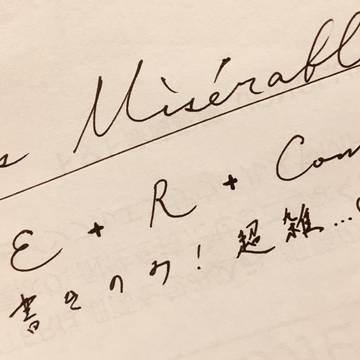 s Misérabl
E + R + Com
書きのみ！超雑…